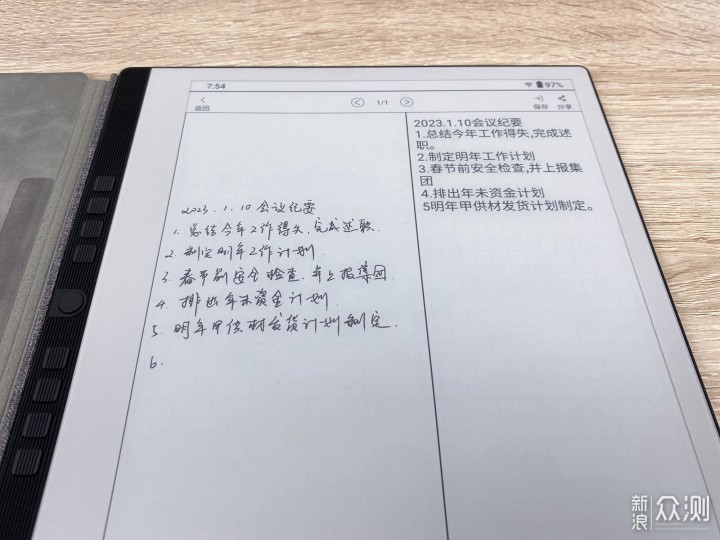 7:54
97%
返回
1/1
保存
分享
2023.1.10会议纪要
1.总结今年工作得失,完成述职.
2.制定明年工作计划.
3.春节前安全检查.并上报集团.
4.排出年末资金计划.
5.明年甲供材发货计划制定.
6.
2023.1.10会议纪要
1.总结今年工作得失,完成述
职。
2.制定明年工作计划
3.春节前安全检查,并上报集
团
4.排出年未资金计划
5明年甲供材发货计划制定。
新浪
众测